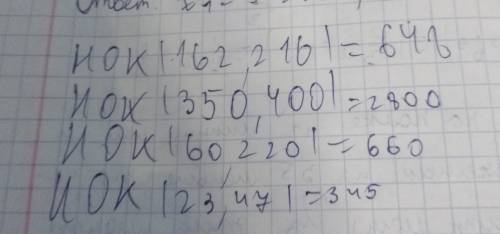 Ответ
НОК(162,216)=648
НОК(350,400)=2800
НОК(60,220)=660
НОК(23,47)=345